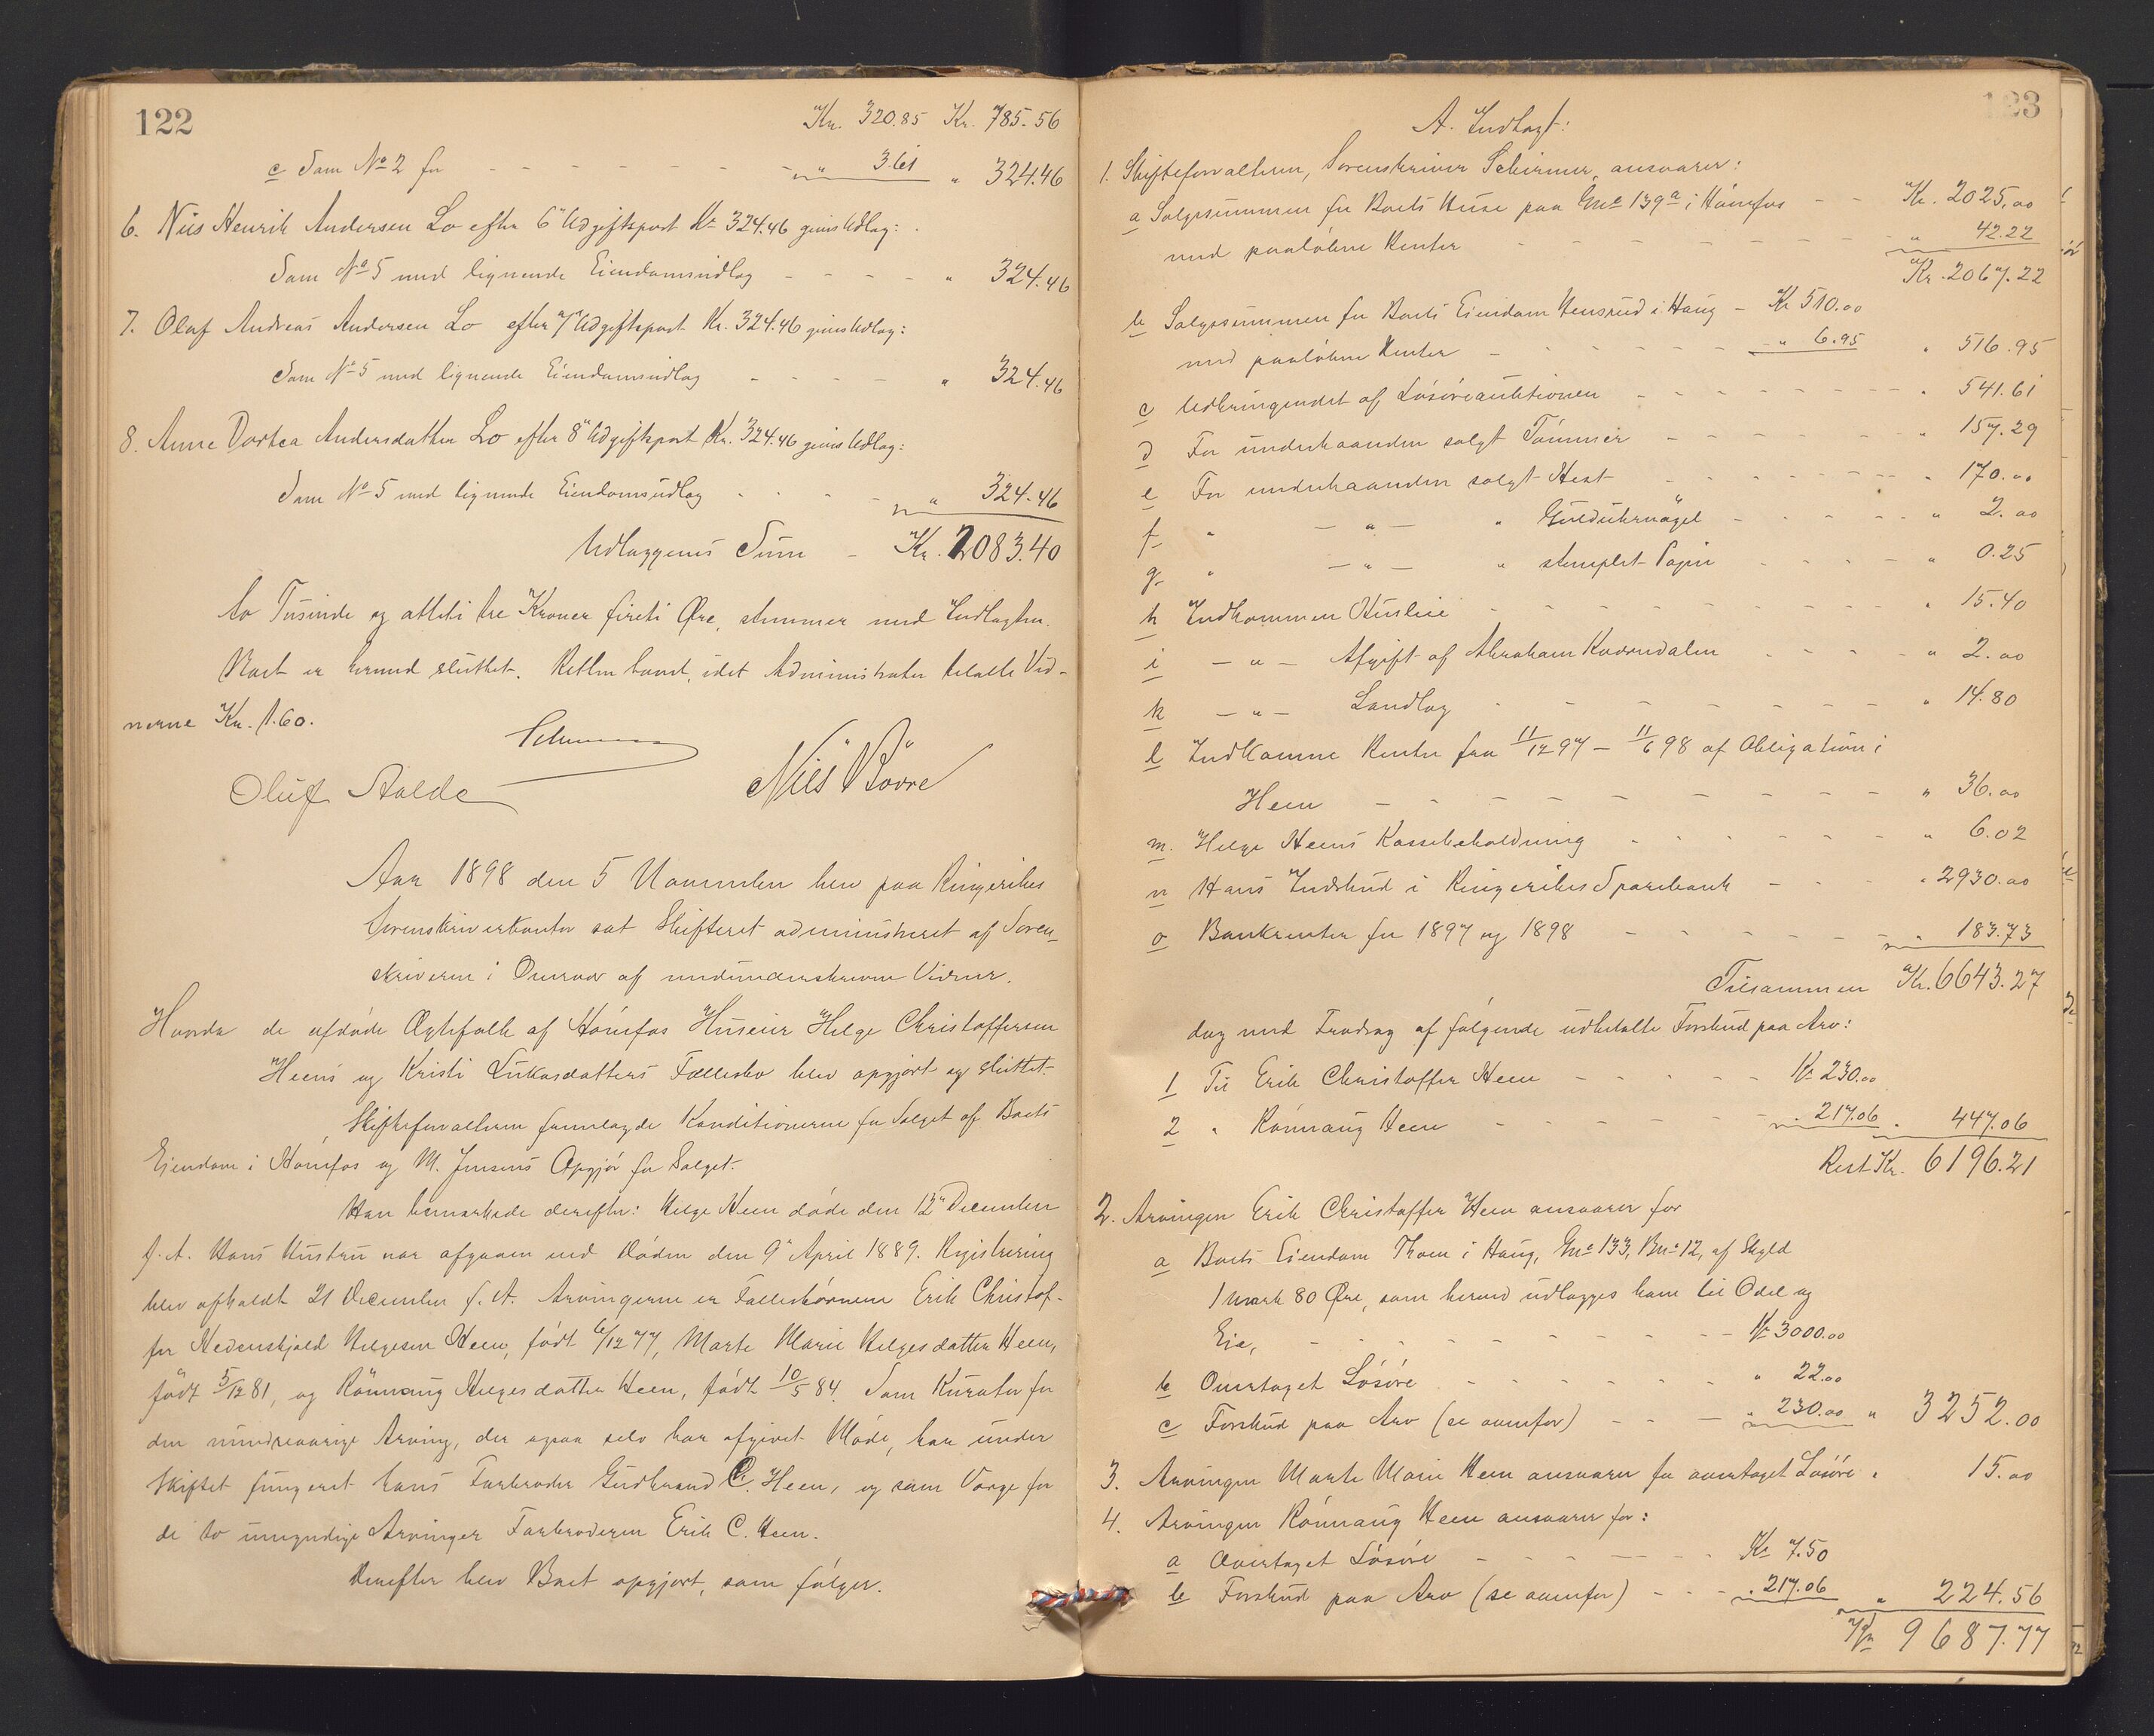 122
Kr. 320.85 Kr. 785.56
c Som No 2 for - - - - - - - " 3.61 " 324.46
6. Nils Henrik Andersen Lo efter 6" Udgiftspost Kr 324.46 gives Udlæg:
Som No 5 med lignende Eiendomsudlæg - - - - " 324.46
7. Olaf Andreas Andersen Lo efter 7" Udgiftspost Kr. 324.46 gives Udlæg:
Som No 5 med lignende Eiendomsudlæg - - - - " 324.46
8. Anne Dortea Andersdatter Lo efter 8" Udgiftspost Kr. 324.46 gives Udlæg:
Som No 5 med lignende Eiendomsudlæg - - - - " 324.46
Udlæggenes Sum - Kr. 2083.40
to Tusinde og otteti tre Kroner firti Øre, stemmer med Indtægten.
Boet er hermed sluttet. Retten hævet, idet Administrator betalte Vid-
nerne Kr. 1.60.
Schirmer
Oluf Aalde Nils Bovre
Aar 1898 den 5 November blev paa Ringerikes
Sorenskriverkontor sat Skifteret administreret af Soren-
skriveren i Overvær af medunderskrevne Vidner.
Hvorda de afdøde Ægtefolk af Hønefos Huseier Helge Christoffersen
Heens og Kristi Lukasdatters Fællesbo blev opgjort og sluttet.
Skifteforvalteren fremlagde Konditionerne for Salget af Boets
Eiendom i Hønefos og M. Jensens Opgjør for Salget.
Han bemærkede derefter: Helge Heen døde den 12" December
f. A. Hans Hustru var afgaaen ved Døden den 9" April 1889. Registrering
blev afholdt 21 December f. A. Arvingerne er Fællesbørnene Erik Christof-
fer Hedenskjold Helgesen Heen, født 6/12 77, Marte Marie Helgesdatter Heen,
født 5/12 81, og Rönnaug Helgesdatter Heen, født 10/5 84. Som Kurator for
den mindreaarige Arving, der ogsaa selv har afgivet Møde, har under
Skiftet fungeret hans Farbroder Gudbrand C. Heen, og som Værge for
de to umyndige Arvinger Farbroderen Erik C. Heen.
Derefter blev Boet opgjort, som følger.
123
A. Indtægt:
1. Skifteforvalteren, Sorenskriver Schirmer, ansvarer:
a Salgssummen for Boets Huse paa Gno 139a i Hönefos - - Kr. 2025.00
med paaløbne Renter - - - - - - - " 42.22
Kr. 2067.22
b Salgssummen for Boets Eiendom Hensrud i Haug - Kr 510.00
med paaløbne Renter - - - - - - " 6.95 " 516.95
c Udbringendet af Løsøreauktionen - - - - - - - " 541.61
d For underhaanden solgt Tømmer - - - - - - - " 157.29
e For underhaanden solgt Hest - - - - - - " 170.00
f " - " - " Gulduhrnøgel - - - - - " 2.00
g " - " - " stemplet Papir - - - - - " 0.25
h Indkommen Husleie - - - - - - - - " 15.40
i - " - Afgift af Abraham Kværndalen - - - - " 2.00
k - " - Landlog - - - - - - - - " 14.80
l Indkomne Renter fra 11/12 97 - 11/6 98 af Obligation i
Heen - - - - - - - - - - " 36.00
m. Helge Heens Kassebeholdning - - - - - " 6.02
n Hans Indskud i Ringerikes Sparebank - - - - " 2930.00
o Bankrenter for 1897 og 1898 - - - - - - " 183.73
Tilsammen Kr. 6643.27
dog med Fradrag af følgende udbetalte Forskud paa Arv:
1 Til Erik Christoffer Heen - - - - - Kr 230.00
2 " Rönnaug Heen - - - - - - " 217.06 " 447.06
Rest Kr. 6196.21
2. Arvingen Erik Christoffer Heen ansvarer for
a Boets Eiendom Moen i Haug, Gno 133, Bno 12, af Skyld
1 Mark 80 Øre, som herved udlægges ham til Odel og
Eie, - - - - - - - - - Kr 3000.00
b Overtaget Løsøre - - - - - - - " 22.00
c Forskud paa Arv (se ovenfor) - - - " 230.00 " 3252.00
3. Arvingen Marte Marie Heen ansvarer for overtaget Løsøre " 15.00
4. Arvingen Rönnaug Heen ansvarer for:
a Overtaget Løsøre - - - - - - Kr 7.50
b Forskud paa Arv (se ovenfor) - - - " 217.06 " 224.56
Kr 9687.77